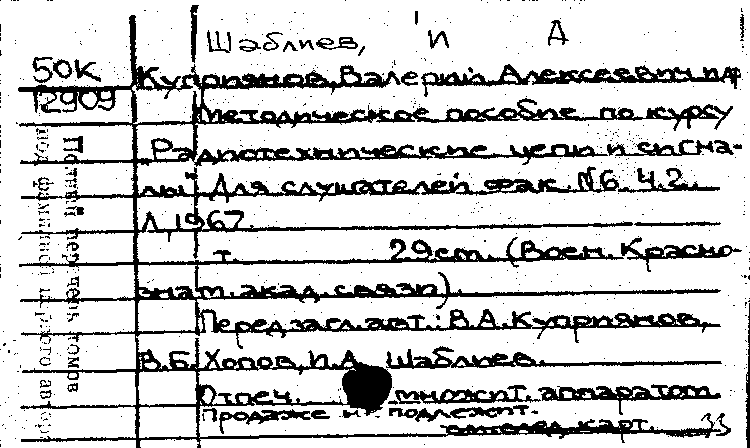 Шаблиев, И А
50К
12909
Куприянов, Валерий Алексеевич и др
Методическое пособие по курсу
„Радиотехнические цепи и сигна-
лы". Для слушателей фак. №6. Ч.2.
Л, 1967.
т. 29см. (Воен. Красно-
знам. акад. связи).
Перед загл. авт.: В.А. Куприянов,
В.Б. Хопов, И.А. Шаблиев.
Отпеч. множит. аппаратом
Продаже не подлежит.
карт. 33
Полный перечень томов
под фамилией первого автора